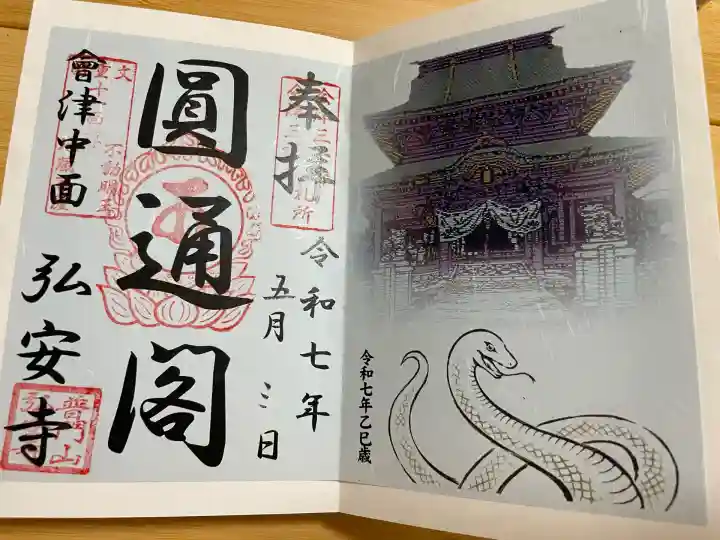 奉拝
令和七年
五月三日
圓通閣
會津中面
弘安寺
普門山
不動明王
札所
令和七年乙巳歳